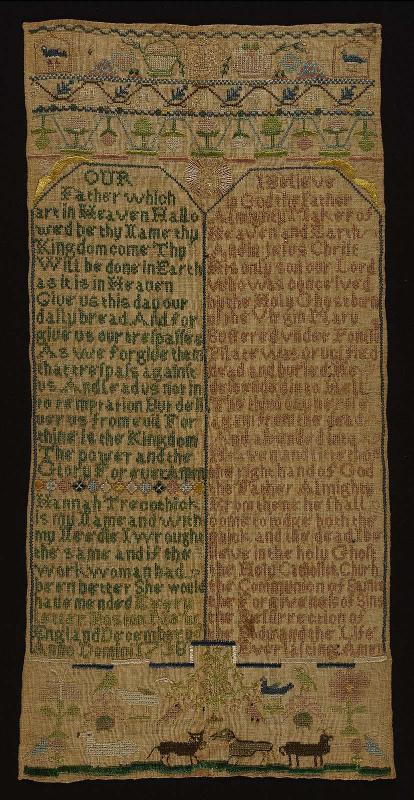 OUR
Father which
art in Heaven Hallo
wed be thy Name thy
Kingdom come Thy
Will be done in Earth
as it is in Heaven
Give us this day our
daily bread And for
give us our trespasses
As we forgive them
that trespass against
us And lead us not in
to temptation But deli
ver us from evil For
thine Is the Kingdom
The power and the
Glory For ever Amen
Hannah Trecothick
is my Name and with
my Needle I wrought
the same and if the
work woman had
been better She would
have mended Every
letter Boston New
England December
Anno Domini 1738
I Believe
in God the Father
Almighty Maker of
Heaven and Earth
And in Jesus Christ
His only son our Lord
who was conceived
by the Holy Ghost born
of the Virgin Mary
Suffered under Pontiu
Pilate was crucified
dead and buried He
descended in to Hell
The third day he rose
again from the dead
And ascended into
Heaven and sitteth on
the right hand of God
the Father Almighty
From thence he shall
come to judge both the
quick and the dead I be
lieve in the holy Ghost
the Holy Catholick Church
the Communion of Saints
the Forgiveness of Sins
the Resurrection of
Body and the Life
Everlasting Amen